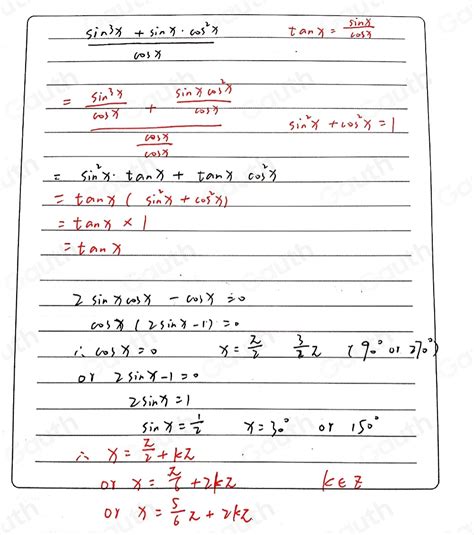 sin³x + sinx · cos²x / cosx    tanx = sinx / cosx
= sin³x / cosx + sinx cos²x / cosx
cosx / cosx    sin²x + cos²x = 1
= sin²x · tanx + tanx cos²x
= tanx ( sin²x + cos²x )
= tanx × 1
= tanx
2 sinx cosx - cosx = 0
cosx ( 2sinx - 1 ) = 0
∴ cosx = 0    x = π/2    3/2 π    ( 90° or 270° )
or 2sinx - 1 = 0
2sinx = 1
sinx = 1/2    x = 30° or 150°
∴ x = π/2 + kπ
or x = π/6 + 2kπ    k ∈ Z
or x = 5/6 π + 2kπ
Gauth